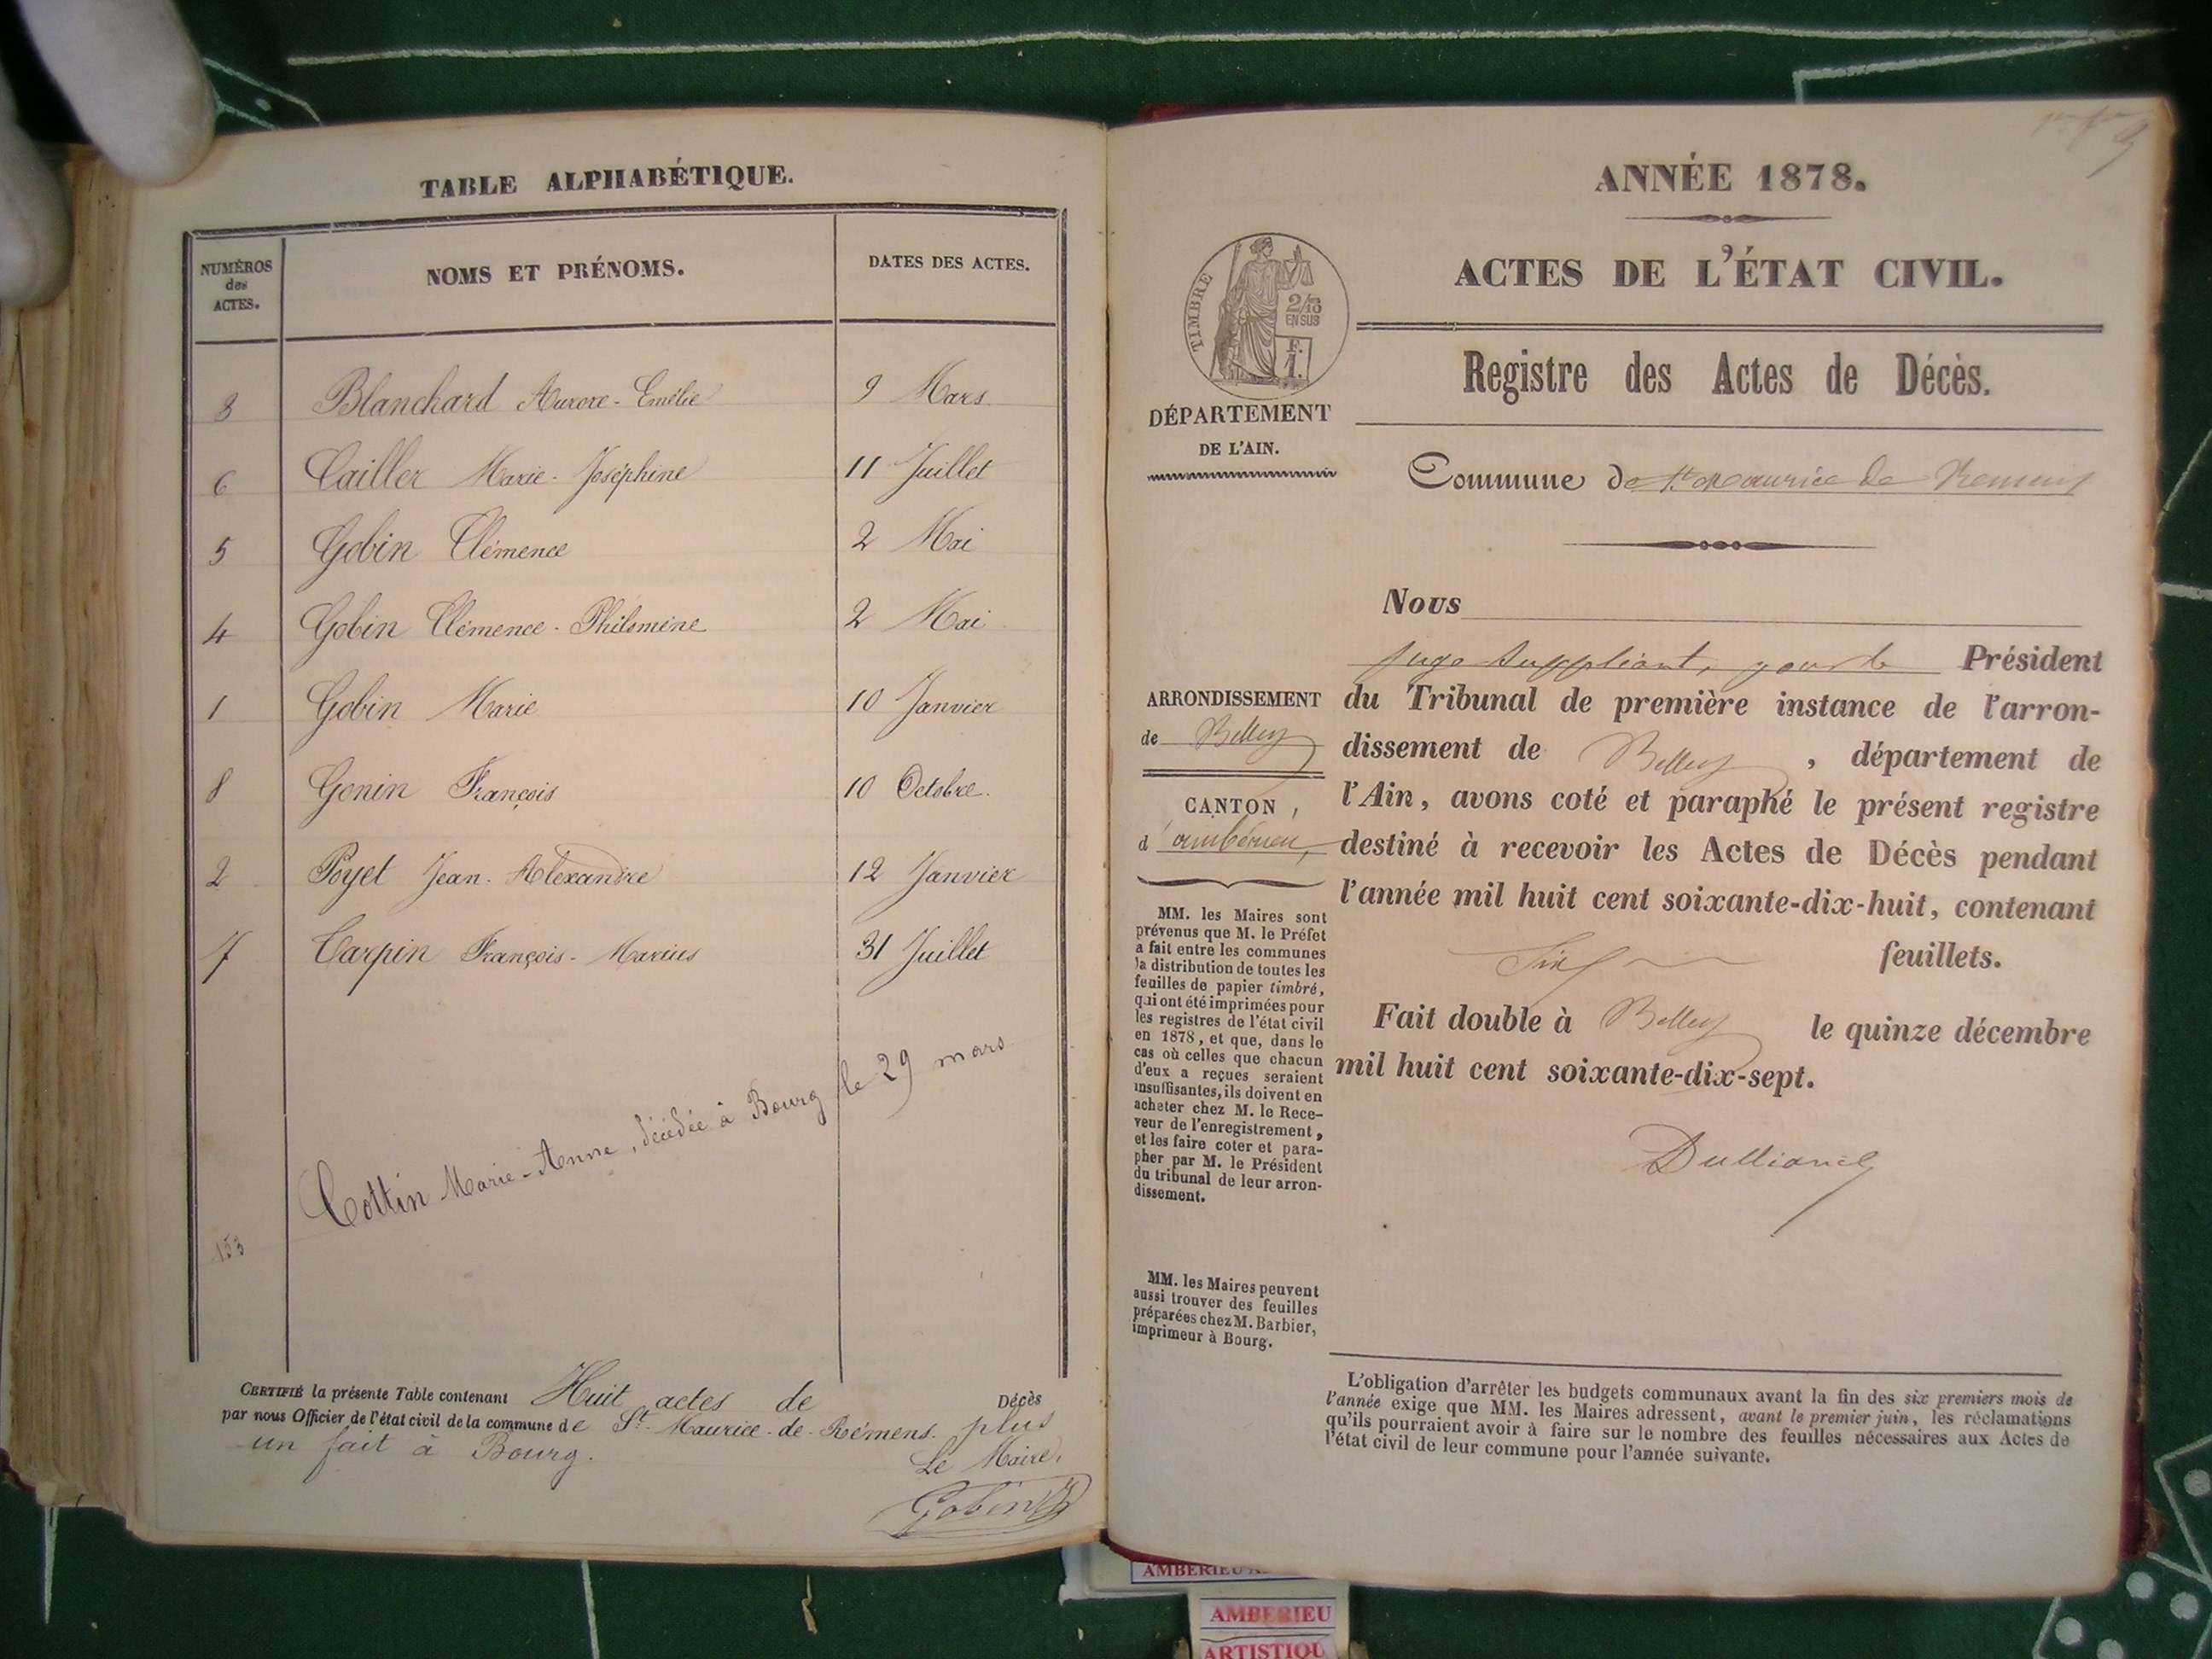 TABLE ALPHABÉTIQUE.
NUMÉROS des ACTES. NOMS ET PRÉNOMS. DATES DES ACTES.
3 Blanchard Aurore-Emélie 9 Mars
6 Cailler Marie-Joséphine 11 Juillet
5 Gobin Clémence 2 Mai
4 Gobin Clémence-Philomène 2 Mai
1 Gobin Marie 10 Janvier
8 Gonin François 10 Octobre.
2 Poyet Jean-Alexandre 12 Janvier
7 Carpin François-Marius 31 Juillet
Cottin Marie-Anne, décédée à Bourg le 29 mars
153
CERTIFIÉ la présente Table contenant Huit actes de Décès
par nous Officier de l'état civil de la commune de St Maurice-de-Rémens. plus
un fait à Bourg.
Le Maire,
Gobin
ANNÉE 1878.
ACTES DE L'ÉTAT CIVIL.
TIMBRE
2/10
EN SUS
F.
1.
Registre des Actes de Décès.
DÉPARTEMENT
DE L'AIN.
Commune de St Maurice de Remens
Nous
juge suppléant, pour le Président
ARRONDISSEMENT
de Belley
CANTON
d'ambérieu,
du Tribunal de première instance de l'arron-
dissement de Belley, département de
l'Ain, avons coté et paraphé le présent registre
destiné à recevoir les Actes de Décès pendant
l'année mil huit cent soixante-dix-huit, contenant
Six feuillets.
Fait double à Belley le quinze décembre
mil huit cent soixante-dix-sept.
MM. les Maires sont
prévenus que M. le Préfet
a fait entre les communes
la distribution de toutes les
feuilles de papier timbré,
qui ont été imprimées pour
les registres de l'état civil
en 1878, et que, dans le
cas où celles que chacun
d'eux a reçues seraient
insuffisantes, ils doivent en
acheter chez M. le Rece-
veur de l'enregistrement,
et les faire coter et para-
pher par M. le Président
du tribunal de leur arron-
dissement.
MM. les Maires peuvent
aussi trouver des feuilles
préparées chez M. Barbier,
imprimeur à Bourg.
L'obligation d'arrêter les budgets communaux avant la fin des six premiers mois de
l'année exige que MM. les Maires adressent, avant le premier juin, les réclamations
qu'ils pourraient avoir à faire sur le nombre des feuilles nécessaires aux Actes de
l'état civil de leur commune pour l'année suivante.
AMBERIEU
AMBERIEU
ARTISTIQU